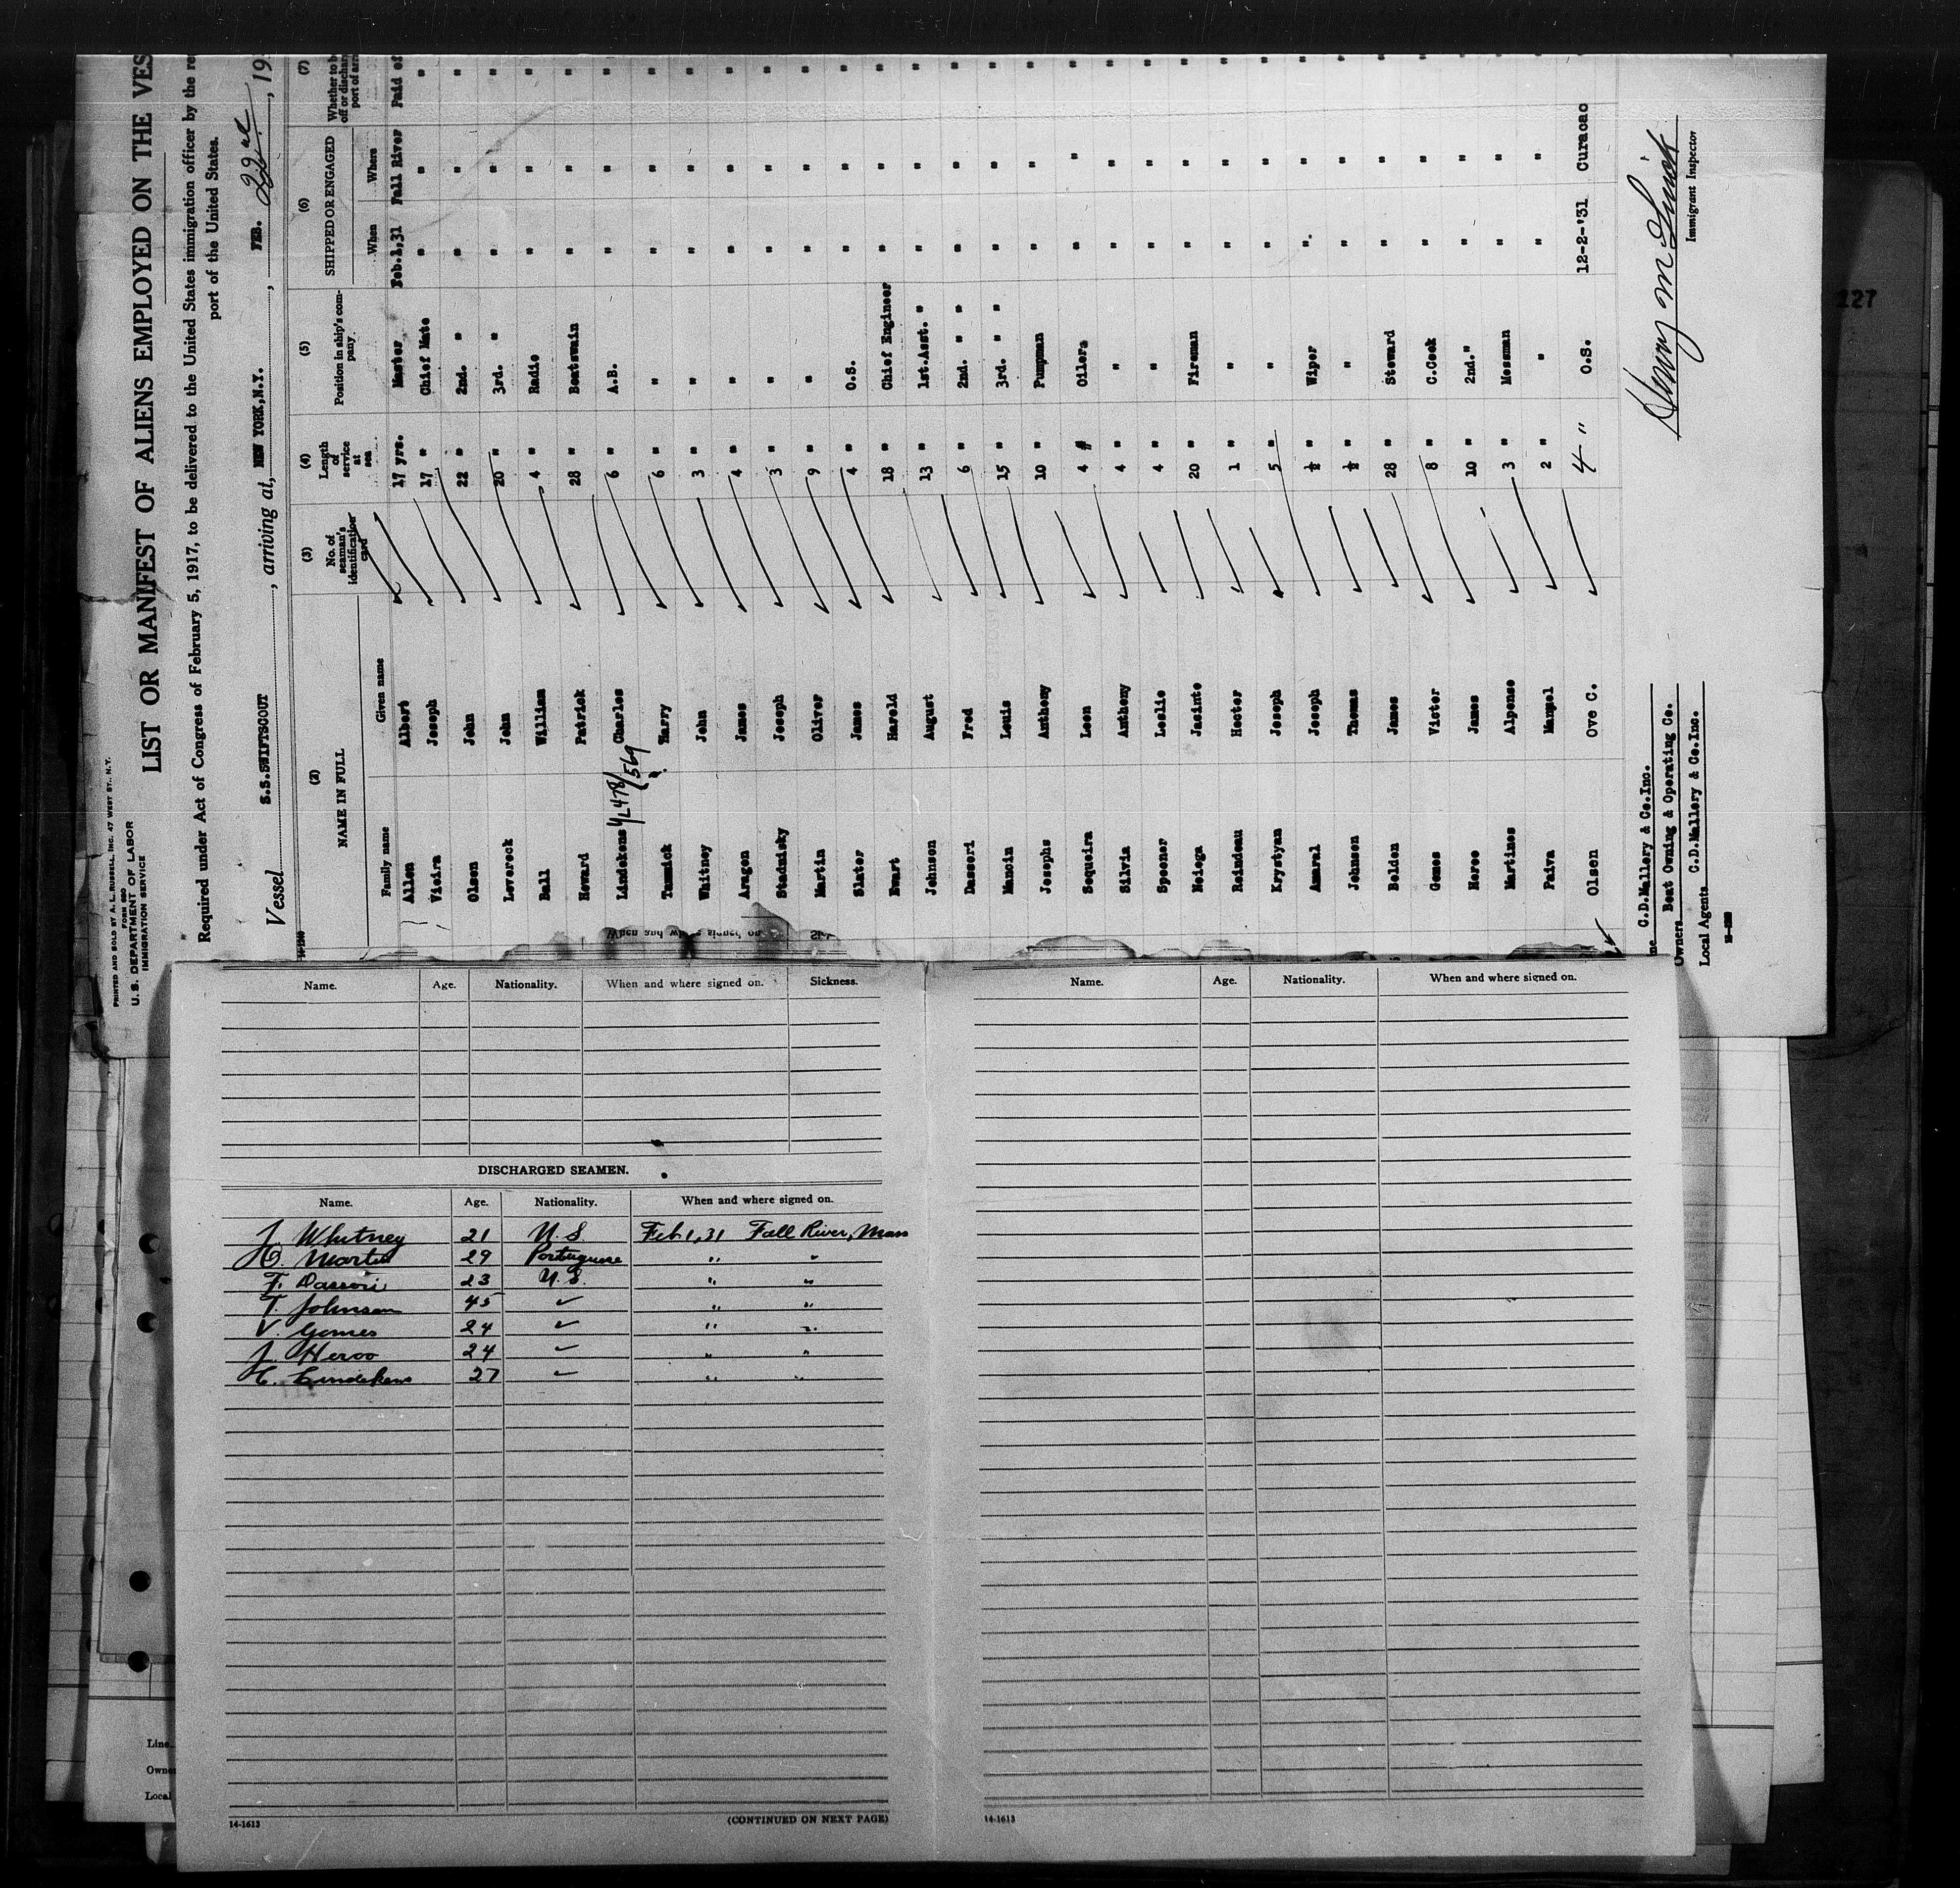 PRINTED AND SOLD BY A. L. RUSSELL, INC. 47 WEST ST., N.Y.
FORM 680
U. S. DEPARTMENT OF LABOR
IMMIGRATION SERVICE
LIST OR MANIFEST OF ALIENS EMPLOYED ON THE VES
Required under Act of Congress of February 5, 1917, to be delivered to the United States immigration officer by the re
port of the United States.
Vessel S.S.SWIFTSCOUT, arriving at, NEW YORK,N.Y., FEB. 22nd, 19
(2) (3) (4) (5) (6) (7)
NAME IN FULL No. of seaman's identification card Length of service at sea Position in ship's company SHIPPED OR ENGAGED Whether to b off or dischar port of arr
Family name Given name When Where
Allen Albert 17 yrs. Master Feb.1,31 Fall River Paid of
Vieira Joseph 17 " Chief Mate " " "
Olsen John 22 " 2nd. " " " "
Levereck John 20 " 3rd. " " " "
Ball William 4 " Radio " " "
Hovard Patrick 28 " Boatswain " " "
Lindekens 4/L478/569 Charles 6 " A.B. " " "
Tannick Harry 6 " " " " "
Whitney John 3 " " " " "
Aragon James 4 " " " " "
Stadnisky Joseph 3 " " " " "
Martin Oliver 9 " " " " "
Slater James 4 " O.S. " " "
Ewart Harold 18 " Chief Engineer " " "
Johnson August 13 " 1st.Asst. " " " "
Dasseri Fred 6 " 2nd. " " " " "
Mancin Louis 15 " 3rd. " " " " "
Josephs Anthony 10 " Pumpman " " "
Sequeira Leon 4 " Oilers " " "
Silvia Anthony 4 " " " " "
Spooner Leslie 4 " " " " "
Neiega Jasinto 20 " Fireman " " "
Reindeau Hector 1 " " " " "
Krystyan Joseph 5 " " " " "
Amaral Joseph ½ " Wiper " " "
Johnson Thomas ½ " " " " "
Belden James 28 " Steward " " "
Gomes Victor 8 " C.Cook " " "
Heroo James 10 " 2nd. " " " "
Martines Alponse 3 " Messman " " "
Paiva Manuel 2 " " " " "
Olsen Ove C. 4 " O.S. 12-2-'31 Curacao
ne C.D.Mallory & Co.Inc.
Owners Boat Owning & Operating Co.
Local Agents C.D.Mallory & Co.Inc.
Immigrant Inspector
127
Name. Age. Nationality. When and where signed on. Sickness.
DISCHARGED SEAMEN.
Name. Age. Nationality. When and where signed on.
J. Whitney 21 U.S. Feb 1, 31 Fall River, Mass
O. Martin 29 Portuguese " "
F. Dassori 23 U.S. " "
T. Johnson 45 ✓ " "
V. Gomes 24 ✓ " "
J. Heroo 24 ✓ " "
C. Lindekens 27 ✓ " "
14-1613 (CONTINUED ON NEXT PAGE)
Name. Age. Nationality. When and where signed on.
14-1613
Line
Owne
Local